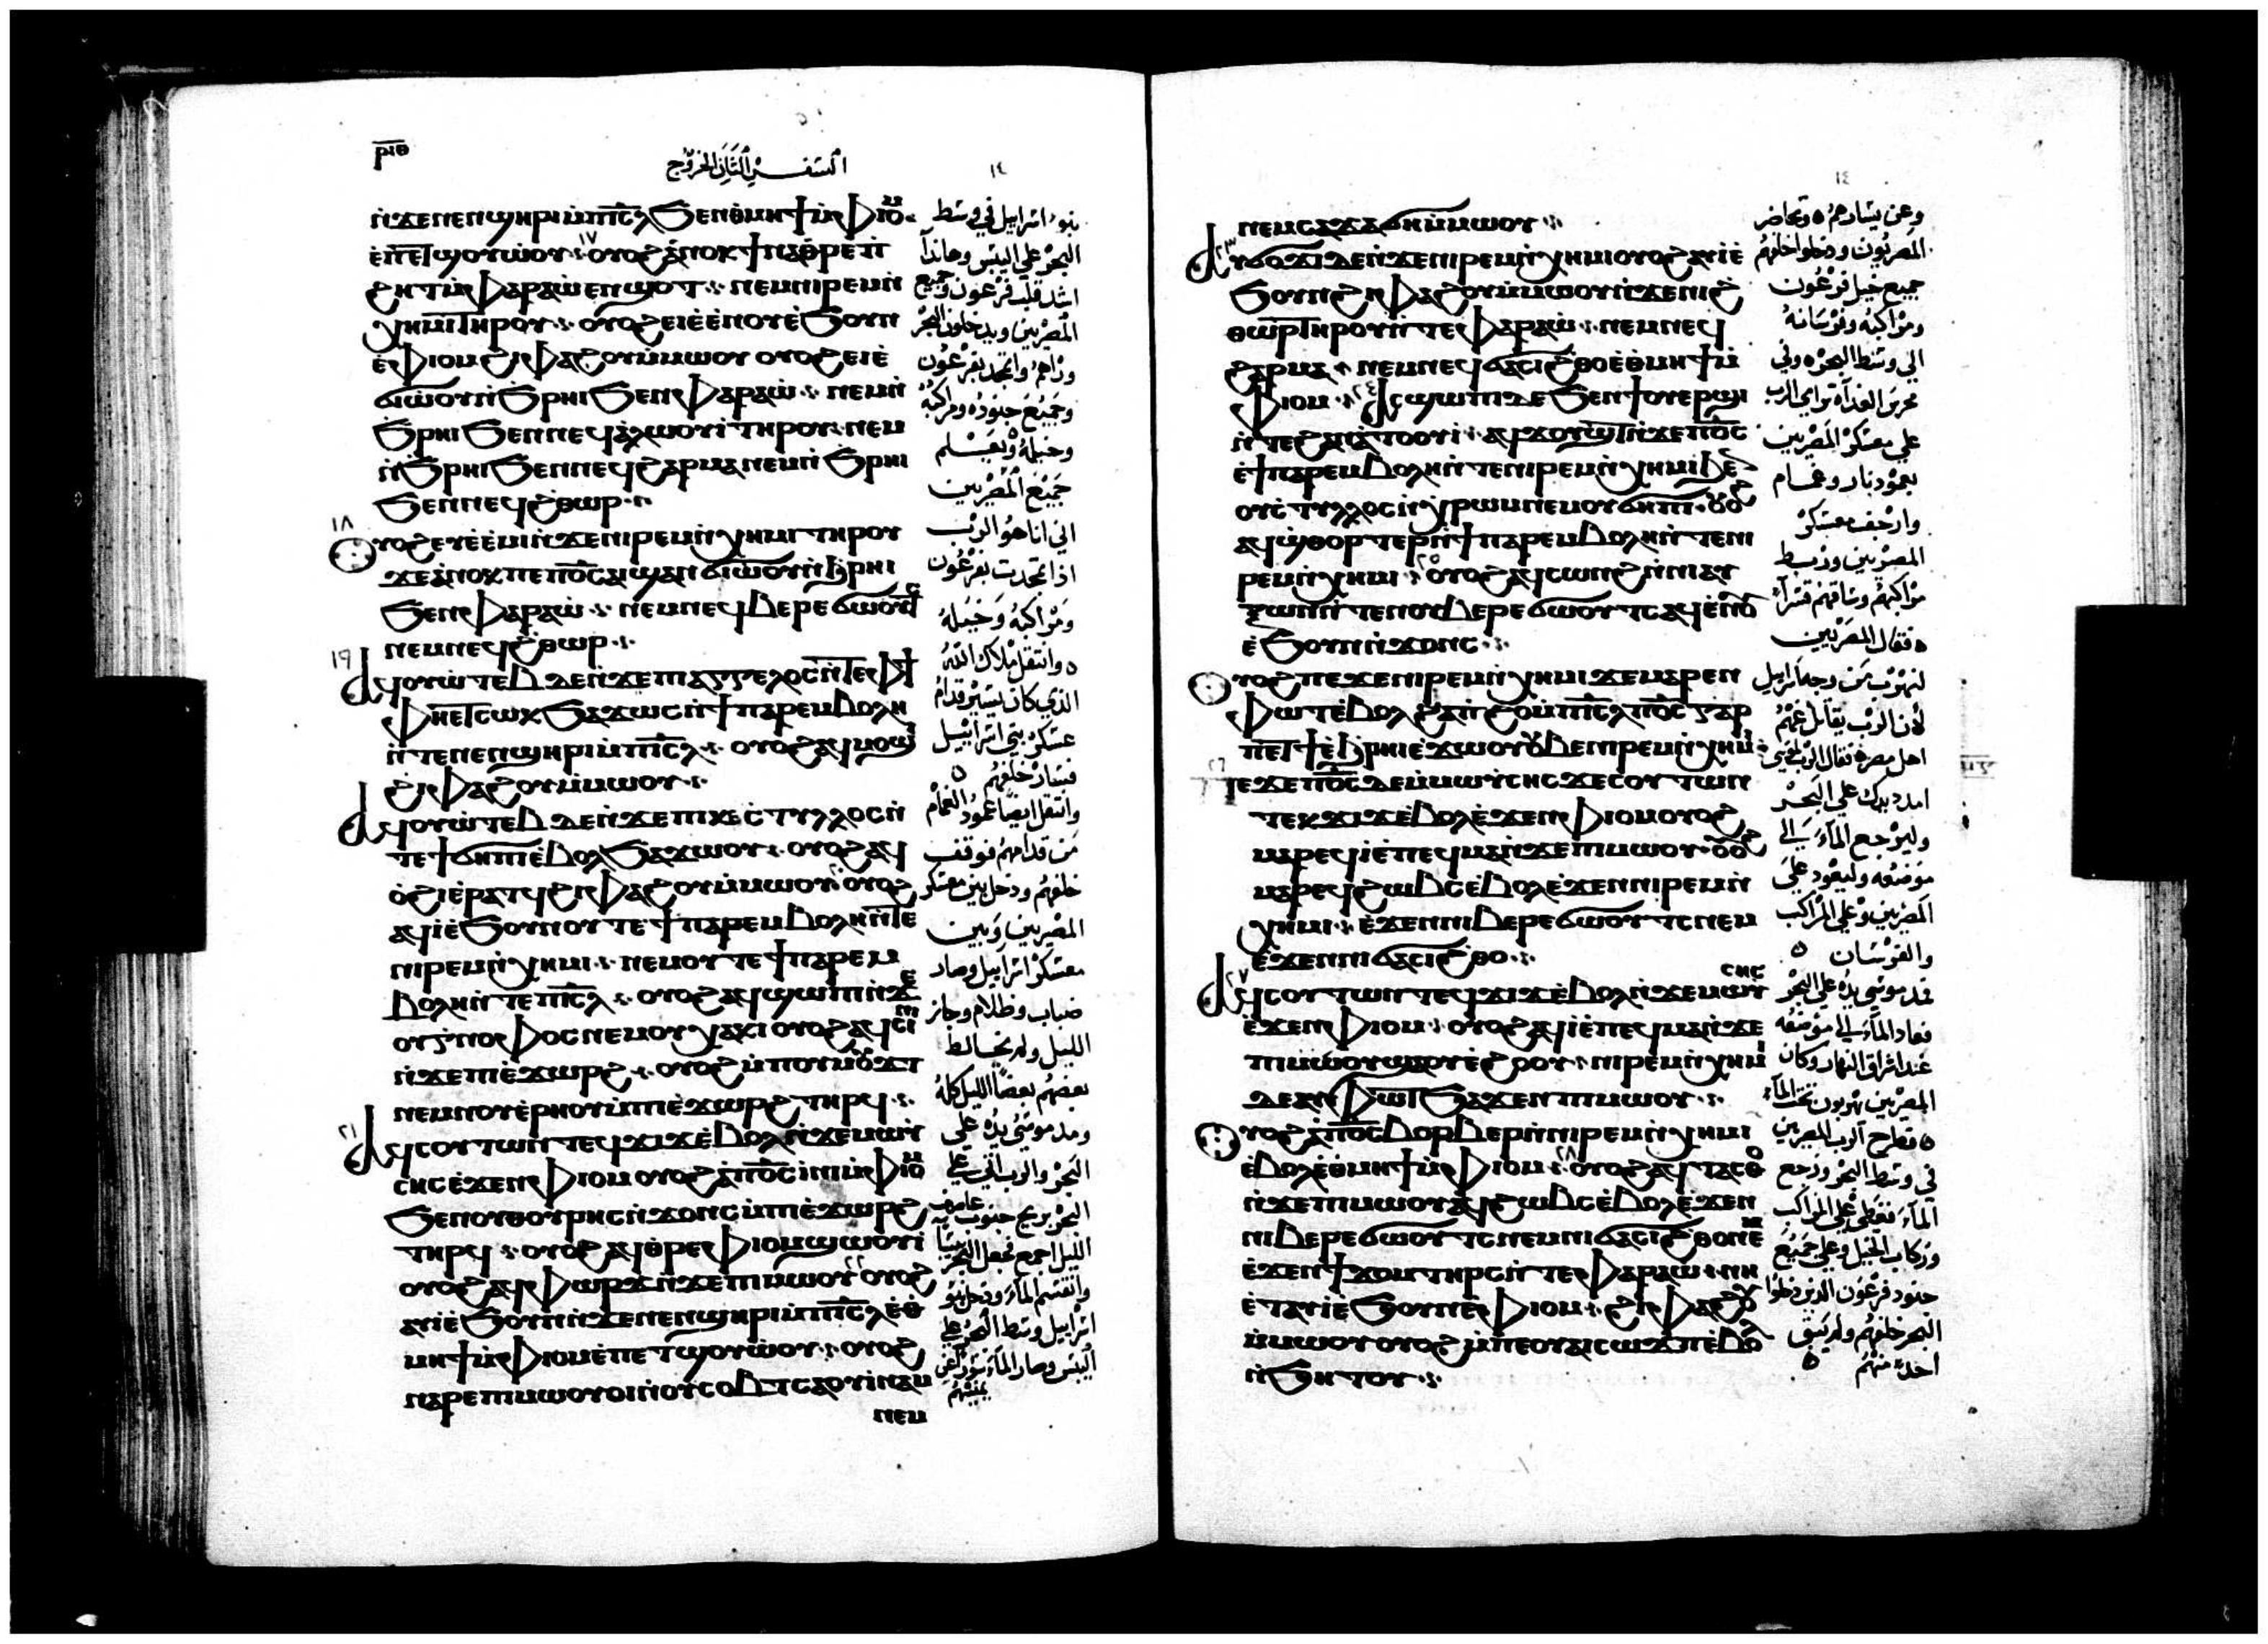 ⲣⲓⲑ
السفر الثاني الخروج
١٤
ⲛ̀ϫⲉⲛⲉⲛϣⲏⲣⲓ ⲙ̀ⲡⲓⲥ̅ⲗ ϧⲉⲛⲑⲙⲏϯ ⲙ̀ⲫⲓⲟⲙ
ⲉ̀ⲡⲉⲧϣⲟⲩⲱⲟⲩ ١٧ ⲟⲩⲟϩ ⲁⲛⲟⲕ ϯⲛⲁⲑⲣⲉⲡ̀
ϩⲏⲧ ⲙ̀ⲫⲁⲣⲁⲱ̀ ⲉⲛϣⲟⲧ ⲛⲉⲙⲛⲓⲣⲉⲙⲛ̀
ⲭⲏⲙⲓ ⲧⲏⲣⲟⲩ ⲟⲩⲟϩ ⲉⲓⲉ̀ⲉ̀ⲛⲟⲩⲉ̀ϧⲟⲩⲛ
ⲉ̀ⲫⲓⲟⲙ ϩⲓⲫⲁϩⲟⲩ ⲙ̀ⲙⲱⲟⲩ ⲟⲩⲟϩ ⲉⲓⲉ̀
ϭⲓⲱ̀ⲟⲩ ⲛ̀ϧⲣⲏⲓ ϧⲉⲛⲫⲁⲣⲁⲱ̀ ⲛⲉⲙⲛ̀
ϧⲣⲏⲓ ϧⲉⲛⲛⲉϥⲁ̀ⲗⲱⲟⲩⲓ̀ ⲧⲏⲣⲟⲩ ⲛⲉⲙ
ⲛ̀ϧⲣⲏⲓ ϧⲉⲛⲛⲉϥϩⲁⲣⲙⲁ ⲛⲉⲙⲛ̀ϧⲣⲏⲓ
ϧⲉⲛⲛⲉϥϩ̀ⲑⲱⲣ
١٨ ⲟⲩⲟϩ ⲉⲩⲉ̀ⲉ̀ⲙⲓ ⲛ̀ϫⲉⲛⲓⲣⲉⲙⲛ̀ⲭⲏⲙⲓ ⲧⲏⲣⲟⲩ
ϫⲉⲁ̀ⲛⲟⲕ ⲡⲉ ⲡϭⲟⲓⲥ ⲁⲓϣⲁⲛϭⲓⲱ̀ⲟⲩ ⲛ̀ϩ̀ⲣⲏⲓ
ϧⲉⲛⲫⲁⲣⲁⲱ̀ ⲛⲉⲙⲛⲉϥⲃⲉⲣⲉϭⲱⲟⲩⲧⲥ
ⲛⲉⲙⲛⲉϥϩ̀ⲑⲱⲣ
١٩ ⲁϥⲟⲩⲱ̀ⲧⲉⲃ ⲇⲉ ⲛ̀ϫⲉⲡⲓⲁⲅⲅⲉⲗⲟⲥ ⲛ̀ⲧⲉⲫϯ
ⲫⲏⲉⲧⲥⲱⲕ ϧⲁϫⲱⲥ ⲛ̀ϯⲡⲁⲣⲉⲙⲃⲟⲗⲏ
ⲛ̀ⲧⲉⲛⲉⲛϣⲏⲣⲓ ⲙ̀ⲡⲓⲥ̅ⲗ ⲟⲩⲟϩ ⲁϥⲙⲟϣⲓ
ϩⲓⲫⲁϩⲟⲩ ⲙ̀ⲙⲱⲟⲩ
ⲁϥⲟⲩⲱ̀ⲧⲉⲃ ⲇⲉ ⲛ̀ϫⲉⲡⲓⲕⲉⲥ̀ⲧⲩⲗⲗⲟⲥ ⲛ̀
ⲧⲉϯϭⲏⲡⲓ ⲉ̀ⲃⲟⲗ ϧⲁϫⲱⲟⲩ ⲟⲩⲟϩ ⲁϥ
ⲟ̀ϩⲓ ⲉ̀ⲣⲁⲧϥ ϩⲓⲫⲁϩⲟⲩ ⲙ̀ⲙⲱⲟⲩ ⲟⲩⲟϩ
ⲁϥⲓ̀ ⲉ̀ϧⲟⲩⲛ ⲟⲩⲧⲉ ϯⲡⲁⲣⲉⲙⲃⲟⲗⲏ ⲛ̀ⲧⲉ
ⲛⲓⲣⲉⲙⲛ̀ⲭⲏⲙⲓ ⲛⲉⲙ ⲟⲩⲧⲉ ϯⲡⲁⲣⲉⲙ
ⲃⲟⲗⲏ ⲛ̀ⲧⲉⲡⲓⲥ̅ⲗ ⲟⲩⲟϩ ⲁϥϣⲱⲡⲓ ⲛ̀ϫⲉ
ⲟⲩⲅⲛⲟⲫⲟⲥ ⲛⲉⲙ ⲟⲩⲭⲁⲕⲓ ⲟⲩⲟϩ ⲁϥⲥⲓⲛⲓ
ⲛ̀ϫⲉⲡⲓⲉ̀ϫⲱⲣϩ ⲟⲩⲟϩ ⲙ̀ⲡⲟⲩⲙⲟⲩϫⲧ
ⲛⲉⲙⲛⲟⲩⲉ̀ⲣⲏⲟⲩ ⲙ̀ⲡⲓⲉ̀ϫⲱⲣϩ ⲧⲏⲣϥ
٢١ ⲁϥⲥⲟⲩⲧⲱⲛ ⲧⲉϥϫⲓϫ ⲉ̀ⲃⲟⲗ ⲛ̀ϫⲉⲙⲱⲩ̀
ⲥⲏⲥ ⲉ̀ϫⲉⲛⲫⲓⲟⲙ ⲟⲩⲟϩ ⲁ̀ⲡϭⲟⲓⲥ ⲓ̀ⲛⲓ ⲙ̀ⲫⲓⲟⲙ
ϧⲉⲛⲟⲩⲑⲟⲩⲣⲏⲥ ⲛ̀ϫⲟⲛⲥ ⲙ̀ⲡⲓⲉ̀ϫⲱⲣϩ
ⲧⲏⲣϥ ⲟⲩⲟϩ ⲁϥⲑⲣⲉⲫⲓⲟⲙ ϣⲱⲟⲩⲓ̀
ⲟⲩⲟϩ ⲁϥⲫⲱⲣϫ ⲛ̀ϫⲉⲡⲓⲙⲱⲟⲩ ⲟⲩⲟϩ
ⲁⲩⲓ̀ ⲉ̀ϧⲟⲩⲛ ⲛ̀ϫⲉⲛⲉⲛϣⲏⲣⲓ ⲙ̀ⲡⲓⲥ̅ⲗ ⲉ̀ⲑ
ⲙⲏϯ ⲙ̀ⲫⲓⲟⲙ ⲉ̀ⲡⲉⲧϣⲟⲩⲱⲟⲩ ⲟⲩⲟϩ
ⲛⲁⲣⲉⲡⲓⲙⲱⲟⲩ ⲟⲓ ⲛ̀ⲟⲩⲥⲟⲃⲧ ⲥⲁⲟⲩⲓ̀ⲛⲁⲙ
ⲛⲉⲙ
بنوا اسرايل في وسط
البحر علي اليبس وهاندا
اشدد قلب فرعون وجميع
المصريين ويدخلون البحر
وراهم واتمجد بفرعون
وجميع جنوده ومراكبه
وخيله ويعلم
جميع المصريين
اني انا هو الرب
اذا تمجدت بفرعون
ومراكبه وخيله
وانتقل ملاك الله
الذي كان يسير قدام
عسكر بني اسراييل
فسار خلفهم
وانتقل ايضا عمود الغمام
من قدامهم فوقف
خلفهم ودخل بين معسكر
المصريين وبين
معسكر اسراييل وصار
ضباب وظلام وجاز
الليل ولم يخالط
بعضهم بعضا الليل كله
ومد موسي يده علي
البحر والرب اتي علي
البحر بريح جنوب عاصفه
الليل اجمع فجعل البحر يبسا
وانقسم الماء ودخل بنو
اسراييل وسط البحر علي
اليبس وصار الماء سورا عن
يمينهم
١٤
ⲛⲉⲙ ⲥⲁϫⲁϭⲏ ⲙ̀ⲙⲱⲟⲩ
٢٣ ⲁⲩϭⲟϫⲓ ⲇⲉ ⲛ̀ϫⲉⲛⲓⲣⲉⲙⲛ̀ⲭⲏⲙⲓ ⲟⲩⲟϩ ⲁⲩⲓ̀ ⲉ̀
ϧⲟⲩⲛ ϩⲓⲫⲁϩⲟⲩ ⲙ̀ⲙⲱⲟⲩ ⲛ̀ϫⲉⲛⲓϩ̀
ⲑⲱⲣ ⲧⲏⲣⲟⲩ ⲛ̀ⲧⲉⲫⲁⲣⲁⲱ̀ ⲛⲉⲙⲛⲉϥ
ϩⲁⲣⲙⲁ ⲛⲉⲙⲛⲉϥϭⲁⲥⲓϩ̀ⲑⲟ ⲉ̀ⲑⲙⲏϯ ⲙ̀
ⲫⲓⲟⲙ ٢٤ ⲁⲥϣⲱⲡⲓ ⲇⲉ ϧⲉⲛϯⲟⲩⲉⲣϣⲓ
ⲛ̀ⲧⲉϩⲁⲛⲁ̀ⲧⲟⲟⲩⲓ̀ ⲁϥϫⲟⲩϣⲧ ⲛ̀ϫⲉⲡϭⲟⲓⲥ
ⲉ̀ϯⲡⲁⲣⲉⲙⲃⲟⲗⲏ ⲛ̀ⲧⲉⲛⲓⲣⲉⲙⲛ̀ⲭⲏⲙⲓ ϧⲉⲛ
ⲟⲩⲥ̀ⲧⲩⲗⲗⲟⲥ ⲛ̀ⲭⲣⲱⲙ ⲛⲉⲙ ⲟⲩϭⲏⲡⲓ ⲟⲩⲟϩ
ⲁϥϣ̀ⲑⲟⲣⲧⲉⲣ ⲛ̀ϯⲡⲁⲣⲉⲙⲃⲟⲗⲏ ⲛ̀ⲧⲉⲛⲓ
ⲣⲉⲙⲛ̀ⲭⲏⲙⲓ ٢٥ ⲟⲩⲟϩ ⲁϥⲥⲱⲛϩ ⲛ̀ⲛⲓⲁⲩ
ⲝⲱⲛ ⲛ̀ⲧⲉⲛⲟⲩⲃⲉⲣⲉϭⲱⲟⲩⲧⲥ ⲁϥⲉ̀ⲛⲟⲩ
ⲉ̀ϧⲟⲩⲛ ⲛ̀ϫⲟⲛⲥ
ⲟⲩⲟϩ ⲡⲉϫⲉⲛⲓⲣⲉⲙⲛ̀ⲭⲏⲙⲓ ϫⲉⲙⲁⲣⲉⲛ
ⲫⲱⲧ ⲉ̀ⲃⲟⲗ ϩⲁⲡ̀ϩⲟ ⲙ̀ⲡⲓⲥ̅ⲗ ⲡϭⲟⲓⲥ ⲅⲁⲣ
ⲡⲉⲧϯ ⲉ̀ϩ̀ⲣⲏⲓ ⲉ̀ϫⲱⲟⲩ ⲟⲩⲃⲉⲛⲓⲣⲉⲙⲛ̀ⲭⲏⲙⲓ
٢٦ ⲡⲉϫⲉⲡϭⲟⲓⲥ ⲇⲉ ⲙ̀ⲙⲱⲩ̀ⲥⲏⲥ ϫⲉⲥⲟⲩⲧⲱⲛ
ⲧⲉⲕϫⲓϫ ⲉ̀ⲃⲟⲗ ⲉ̀ϫⲉⲛⲫⲓⲟⲙ ⲟⲩⲟϩ
ⲙⲁⲣⲉϥⲓ̀ ⲉ̀ⲡⲉϥⲙⲁ ⲛ̀ϫⲉⲡⲓⲙⲱⲟⲩ ⲟⲩⲟϩ
ⲙⲁⲣⲉϥϩⲱⲃⲥ ⲉ̀ⲃⲟⲗ ⲉ̀ϫⲉⲛⲛⲓⲣⲉⲙⲛ̀
ⲭⲏⲙⲓ ⲉ̀ϫⲉⲛⲛⲓⲃⲉⲣⲉϭⲱⲟⲩⲧⲥ ⲛⲉⲙ
ⲉ̀ϫⲉⲛⲛⲓϭⲁⲥⲓϩ̀ⲑⲟ
٢٧ ⲁϥⲥⲟⲩⲧⲱⲛ ⲧⲉϥϫⲓϫ ⲉ̀ⲃⲟⲗ ⲛ̀ϫⲉⲙⲱⲩ̀ⲥⲏⲥ
ⲉ̀ϫⲉⲛⲫⲓⲟⲙ ⲟⲩⲟϩ ⲁϥⲓ̀ ⲉ̀ⲡⲉϥⲙⲁ ⲛ̀ϫⲉ
ⲡⲓⲙⲱⲟⲩ ϣⲟⲩⲉ̀ϩⲟⲟⲩ ⲛⲓⲣⲉⲙⲛ̀ⲭⲏⲙⲓ
ⲇⲉ ⲁⲩⲫⲱⲧ ϧⲁϫⲉⲛⲡⲓⲙⲱⲟⲩ
ⲟⲩⲟϩ ⲁ̀ⲡϭⲟⲓⲥ ⲃⲟⲣⲃⲉⲣ ⲛ̀ⲛⲓⲣⲉⲙⲛ̀ⲭⲏⲙⲓ
ⲉ̀ⲃⲟⲗ ⲉ̀ⲑⲙⲏϯ ⲙ̀ⲫⲓⲟⲙ ٢٨ ⲟⲩⲟϩ ⲁϥⲧⲁⲥⲑⲟ
ⲛ̀ϫⲉⲡⲓⲙⲱⲟⲩ ⲁϥϩⲱⲃⲥ ⲉ̀ⲃⲟⲗ ⲉ̀ϫⲉⲛ
ⲛⲓⲃⲉⲣⲉϭⲱⲟⲩⲧⲥ ⲛⲉⲙⲛⲓϭⲁⲥⲓϩ̀ⲑⲟ ⲛⲉⲙ
ⲉ̀ϫⲉⲛϯϫⲟⲙ ⲧⲏⲣⲥ ⲛ̀ⲧⲉⲫⲁⲣⲁⲱ̀ ⲛⲏ
ⲉ̀ⲧⲁⲩⲓ̀ ⲉ̀ϧⲟⲩⲛ ⲉ̀ⲫⲓⲟⲙ ϩⲓⲫⲁϩⲟⲩ
ⲙ̀ⲙⲱⲟⲩ ⲟⲩⲟϩ ⲙ̀ⲡⲉⲟⲩⲁⲓ ⲥⲱϫⲡ ⲉ̀ⲃⲟⲗ
ⲛ̀ϧⲏⲧⲟⲩ
وعن يسارهم وتحاضر
المصريون ودخلوا خلفهم
جميع خيل فرعون
ومراكبه وفرسانه
الي وسط البحر وفي
محرس الغداة تراي الرب
علي معسكر المصريين
بعمود نار وغمام
وارجف معسكر
المصريين وربط
مراكبهم وساقهم قسرا
فقال المصريين
لنهرب من وجه اسراييل
لان الرب يقاتل عنهم
اهل مصر فقال الرب لموسي
امدد يدك علي البحر
وليرجع الماء الي
موضعه وليعود علي
المصريين وعلي المراكب
والفرسان
فمد موسي يده علي البحر
فعاد الماء الي موضعه
عند اشراق النهار وكان
المصريين يهربون تحت الماء
فطرح الرب المصريين
في وسط البحر ورجع
الماء فغطي علي المراكب
وركاب الخيل وعلي جميع
جنود فرعون الذين دخلوا
البحر خلفهم ولم يبق
احد منهم